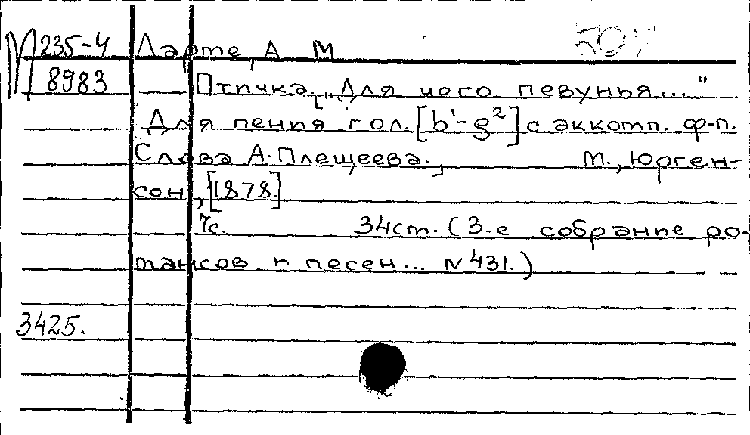 М 235-4 Ларме, А. М
8983 Птичка. [„Для чего певунья..."
Для пения гол. [b'-g²] с аккомп. ф-п.
Слова А. Плещеева., М., Юрген-
сон, [1878.]
7с. 34см. (3-е собрание ро-
мансов и песен... N 431.)
3425.